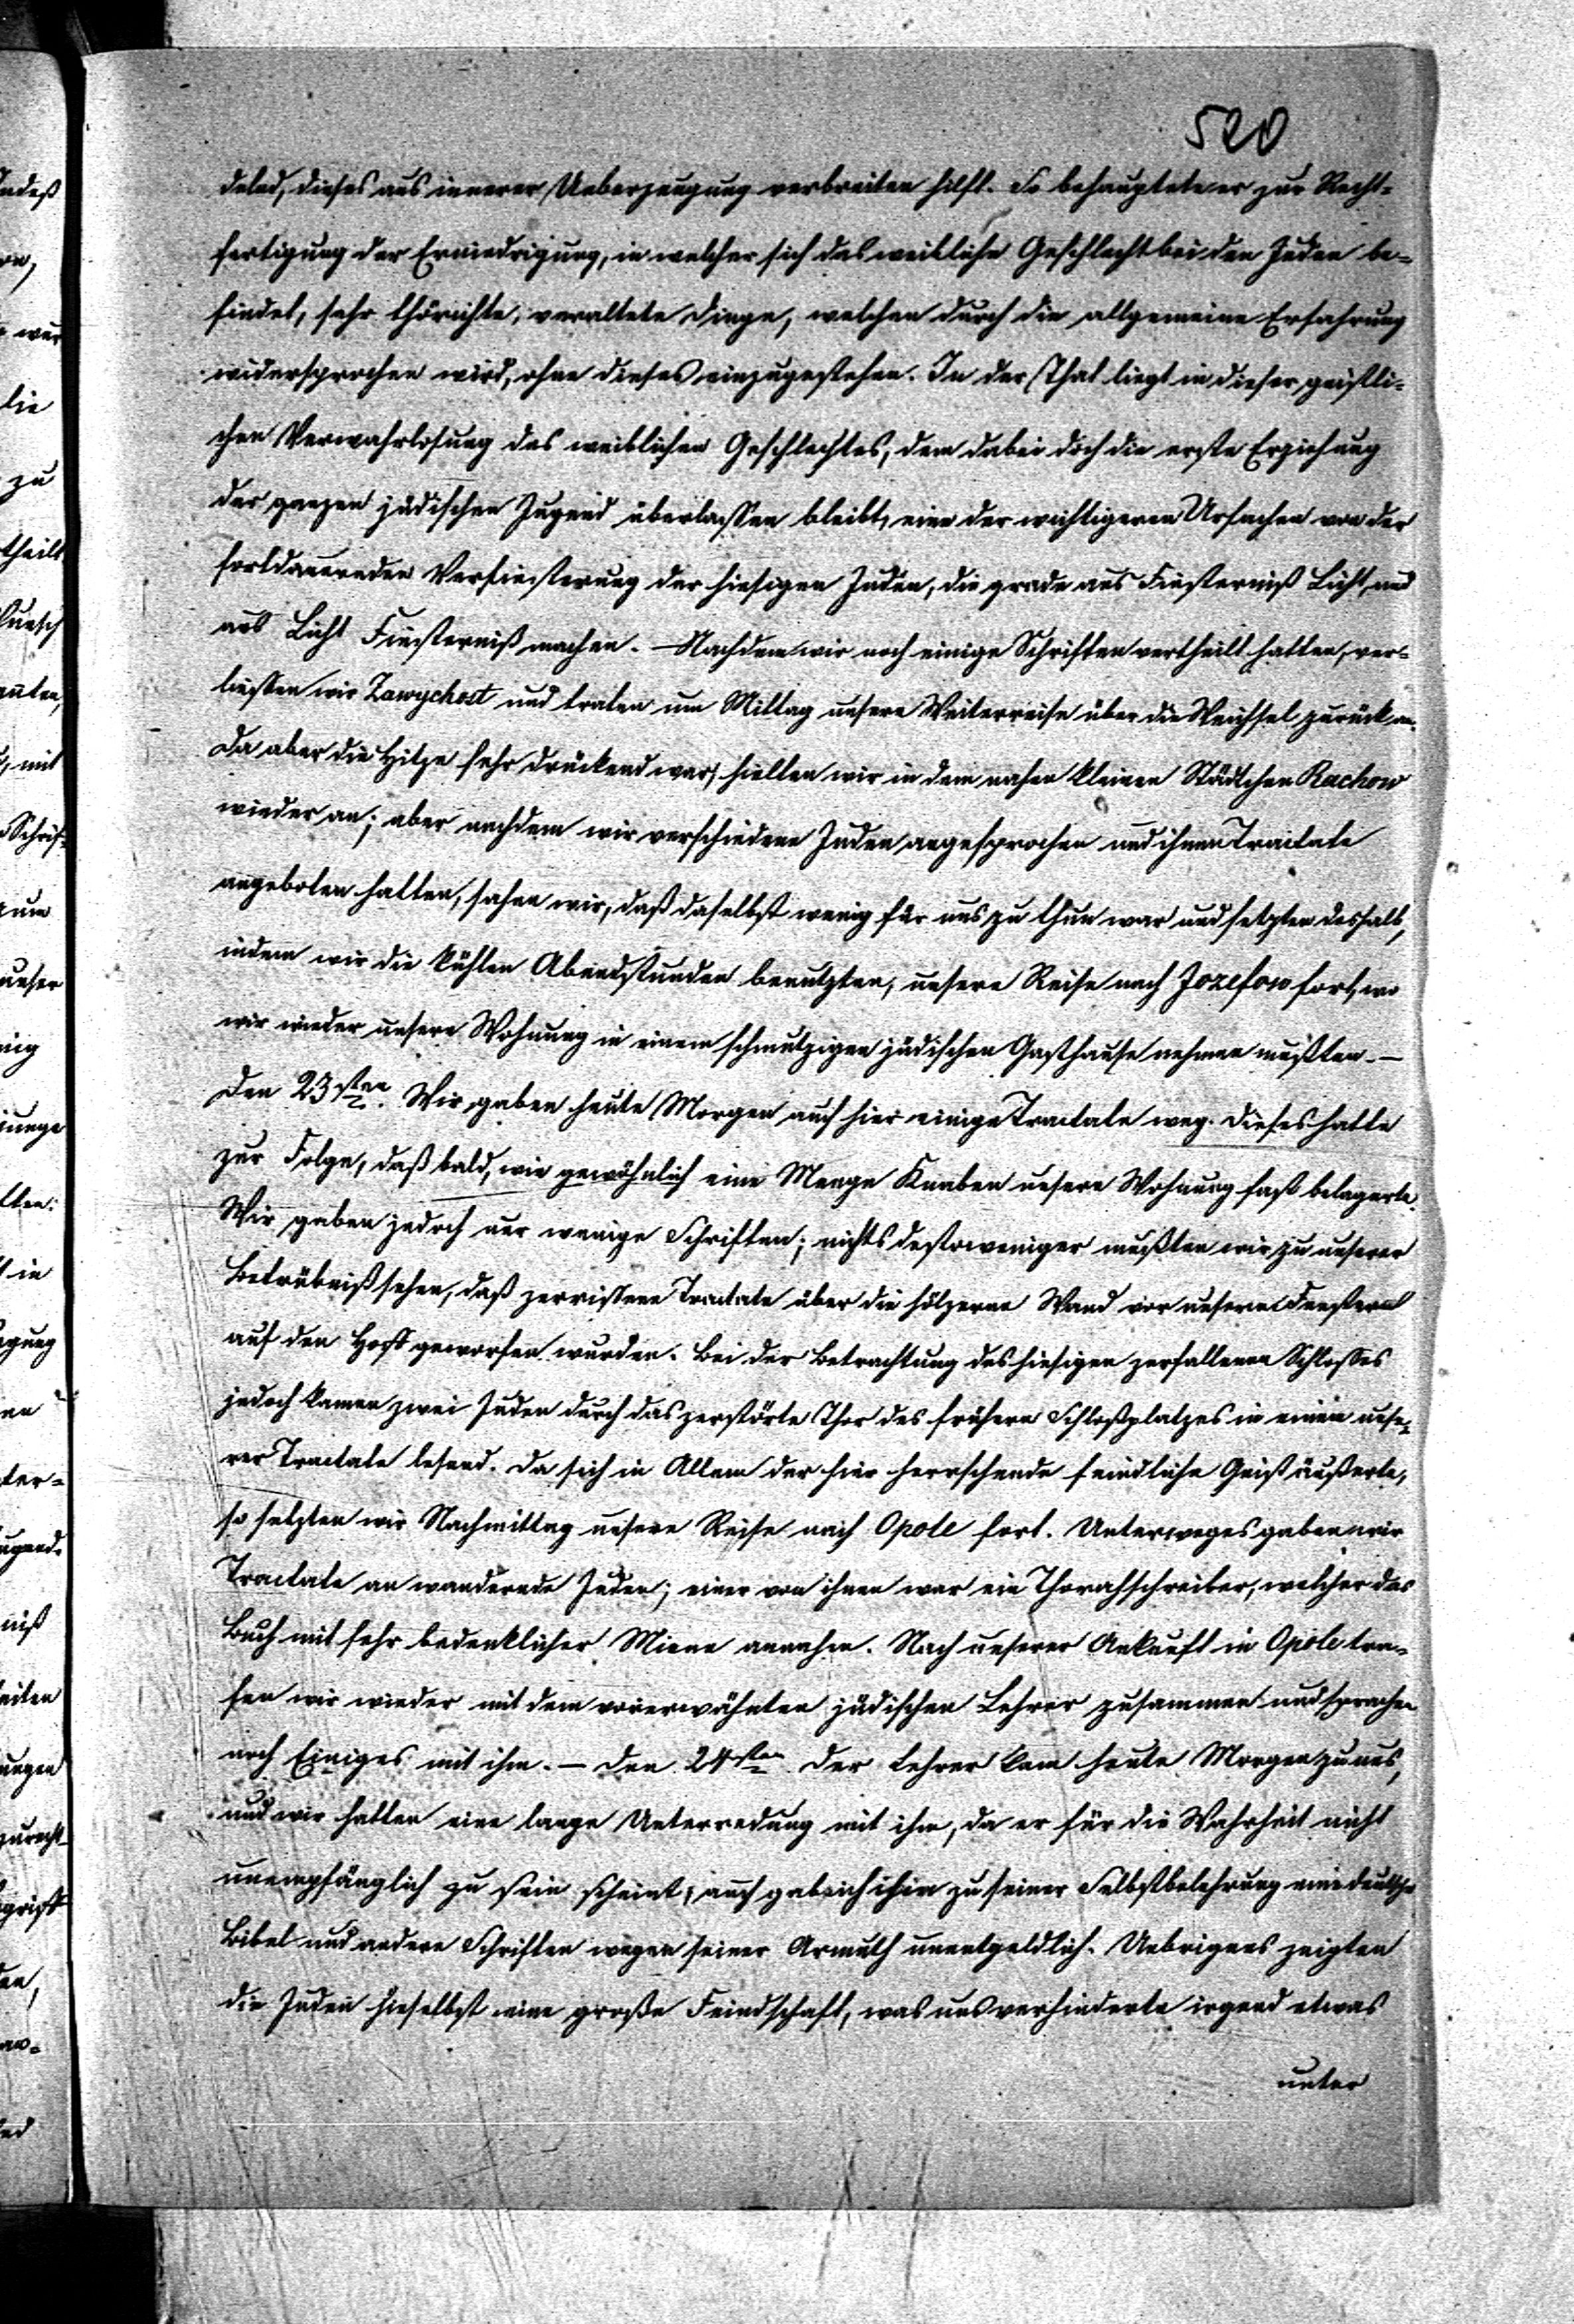 520
delnd, dieses aus innerer Ueberzeugung verbreiten hilft. So behauptete er zur Recht-
fertigung der Erniedrigung, in welcher sich das weibliche Geschlecht bei den Juden be-
findet, sehr thörichte, veraltete Dinge, welchen durch die allgemeine Erfahrung
widersprochen wird, ohne dieses einzugestehen. In der That liegt in dieser geistli-
chen Verwahrlosung des weiblichen Geschlechtes, dem dabei doch die erste Erziehung
der ganzen jüdischen Jugend überlassen bleibt, eine der wichtigeren Ursachen von der
fortdauernden Verfinsterung der hiesigen Juden, die grade aus Finsterniß Licht, und
aus Licht Finsterniß machen. – Nachdem wir noch einige Schriften vertheilt hatten, ver-
liessen wir Zawychost und traten um Mittag unsere Weiterreise über die Weichsel zurück an.
Da aber die Hitze sehr drückend war, hielten wir in dem nahen kleinen Städtchen Rachow
wieder an; aber nachdem wir verschiedene Juden angesprochen und ihnen Tractate
angeboten hatten, sahen wir, daß daselbst wenig für uns zu thun war und setzten deshalb,
indem wir die kühlen Abendstunden benutzten, unsere Reise nach Jozefow fort, wo
wir wieder unsere Wohnung in einem schmutzigen jüdischen Gasthause nehmen mußten. –
Den 23sten. Wir gaben heute Morgen auch hier einige Tractate weg. Dieses hatte
zur Folge, daß bald, wie gewöhnlich eine Menge Knaben unsere Wohnung fast belagerte.
Wir gaben jedoch nur wenige Schriften; nichts destoweniger mußten wir zu unserer
Betrübniß sehen, daß zerrissene Tractate über die hölzerne Wand vor unseren Fenstern
auf den Hoff geworfen wurden. Bei der Betrachtung des hiesigen zerfallenen Schlosses
jedoch kamen zwei Juden durch das zerstörte Thor des frühern Schloßplatzes in einem unse-
rer Tractate lesend. Da sich in Allem der hier herrschende feindliche Geist äußerte,
so setzten wir Nachmittag unsere Reise nach Opole fort. Unterweges gaben wir
Tractate an wandernde Juden; einer von ihnen war ein Thorahschreiber, welcher das
Buch mit sehr bedenklicher Miene annahm. Nach unserer Ankunft in Opole tra-
fen wir wieder mit dem vorerwähnten jüdischen Lehrer zusammen und sprachen
noch Einiges mit ihm. – Den 24sten Der Lehrer kam heute Morgen zu uns,
und wir hatten eine lange Unterredung mit ihm, da er für die Wahrheit nicht
unempfänglich zu sein scheint; auch gab ich ihm zu seiner Selbstbelehrung eine deutsche
Bibel und andere Schriften wegen seiner Armuth unentgeldlich. Uebrigens zeigten
die Juden hieselbst eine große Feindschaft, was uns verhinderte irgend etwas
unter